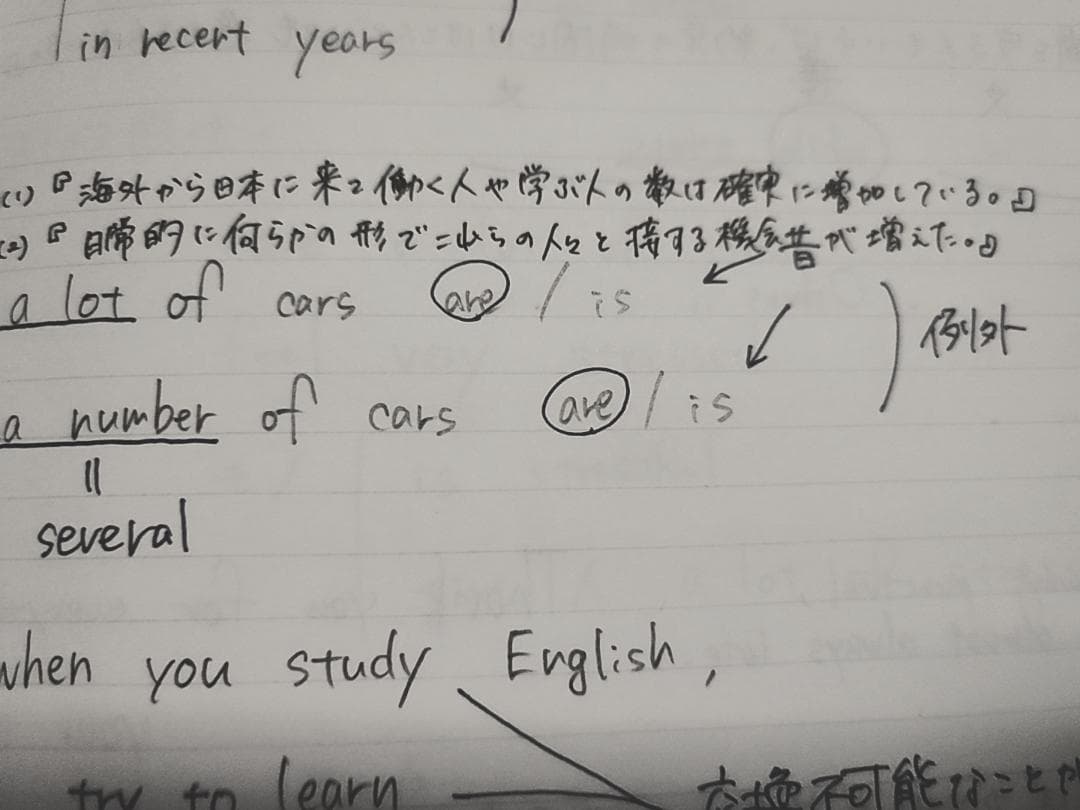 in recent years
(1)『海外から日本に来て働く人や学ぶ人の数は確実に増加している。』
(2)『日常的に何らかの形でこれらの人々と接する機会昔が増えた。』
a lot of cars are / is
例外
a number of cars are / is
||
several
when you study English,
try to learn 交換不可能なことが